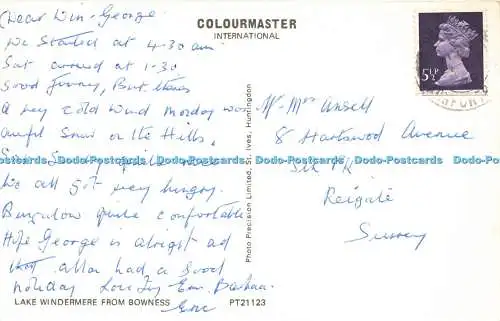 Dear Win - George
COLOURMASTER
INTERNATIONAL
We Started at 4-30 am
Sat around at 1-30
Good Journey, But theres
a very cold wind Monday was
awful Snow on the Hills,
We all got very hungry.
Bungalow quite comfortable
Hope George is alright ad
Allan had a good
holiday Love Joy Em. Barbara
Eric
5½P
Mr - Mrs Ansell
8 Hartswood Avenue
Reigate
Surrey
Photo Precision Limited, St. Ives, Huntingdon
LAKE WINDERMERE FROM BOWNESS PT21123
Dodo-Postcards Dodo-Postcards Dodo-Postcards Dodo-Postcards Dodo-Postcards Dodo-Postcards